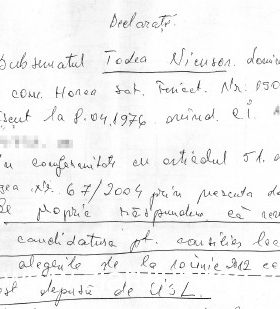 Declarație.
Subsemnatul Todea Nicușor. domici
com. Horea sat. Fericet. Nr. 890
scut la 8.04.1976 posind. C.i.
în conformitate cu articolul 51. a
gea nr. 67/2004 prin prezenta de
pe proprie răspundere că ren
candidatura pt. consilier loc
alegerile de la 10 iunie 2012 ca
est depusă de USL.